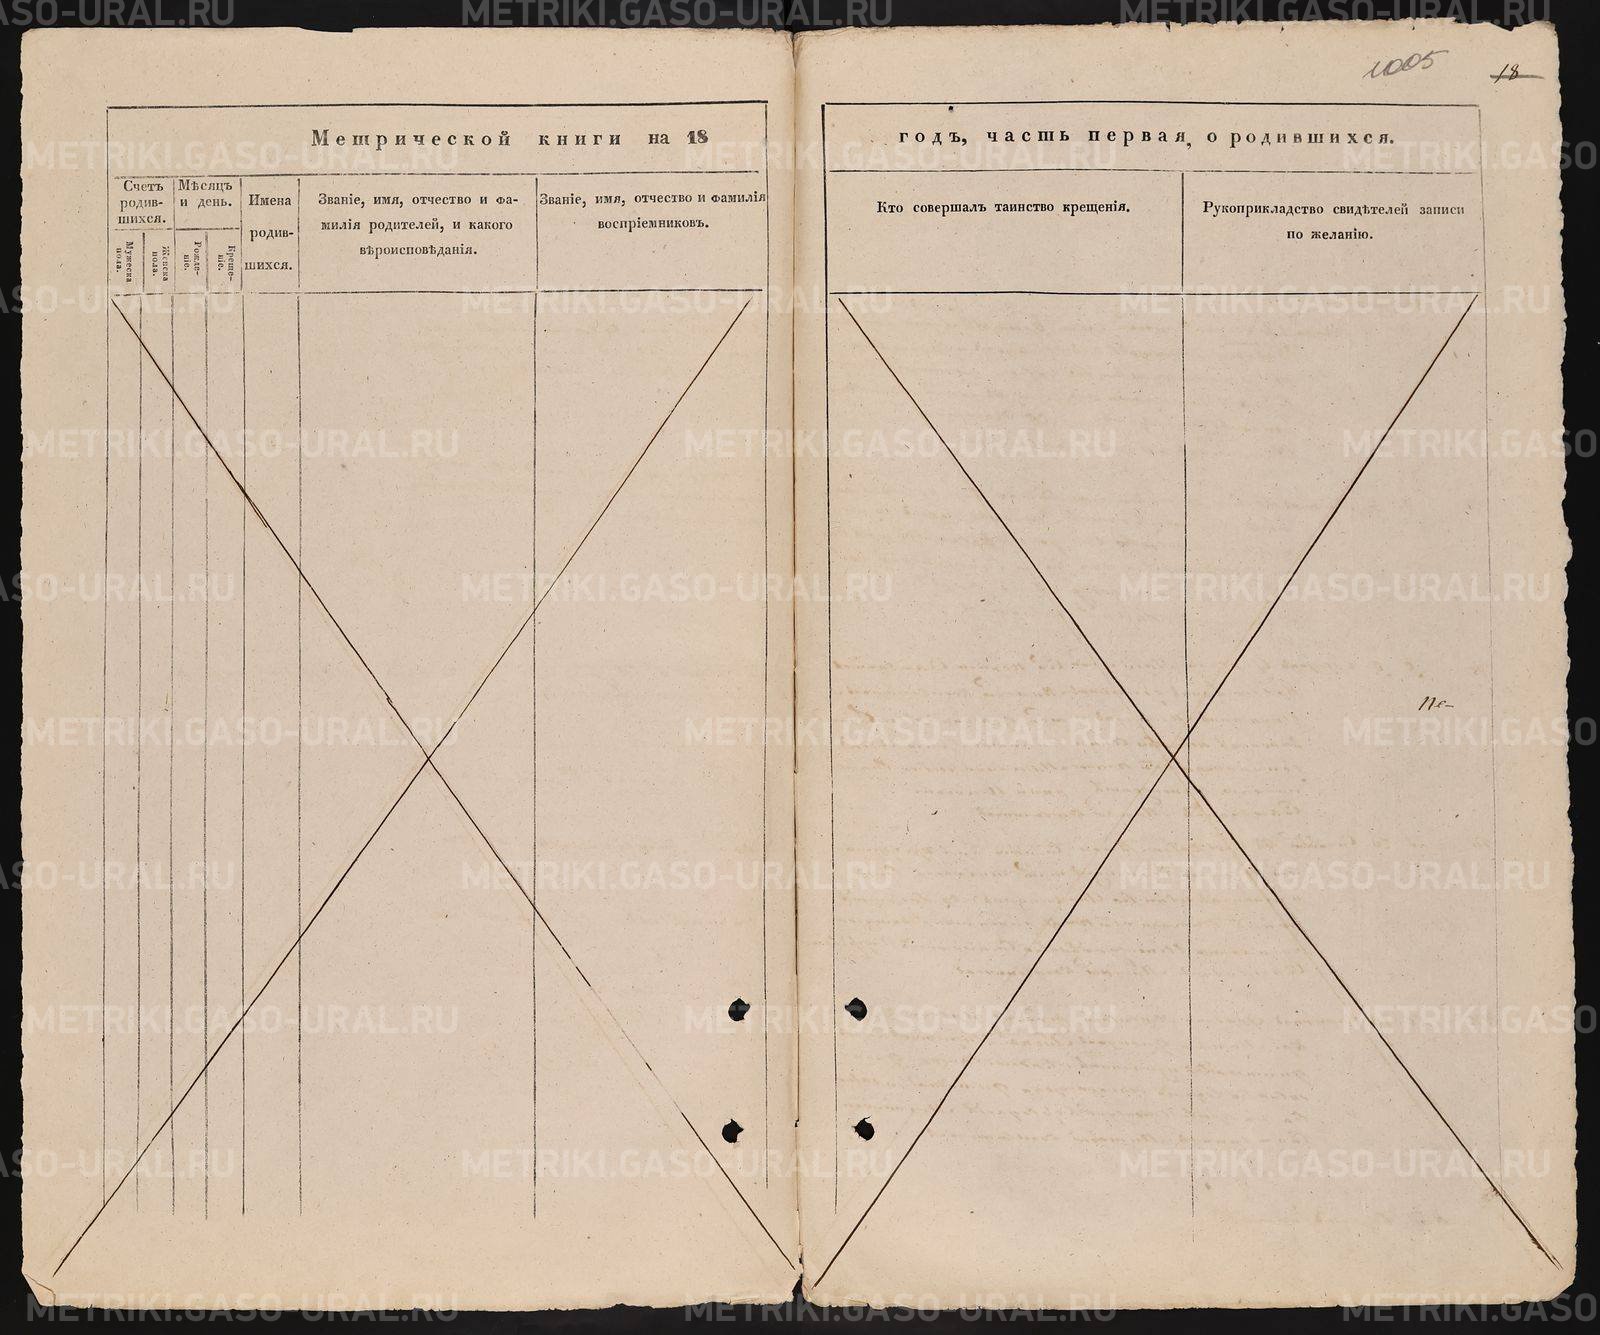 1005
18
Метрической книги на 18
годъ, часть первая, о родившихся.
Счетъ
родив-
шихся.
Мужеска
пола.
Женска
пола.
Мѣсяцъ
и день.
Рожде-
ніе.
Креще-
ніе.
Имена
родив-
шихся.
Званіе, имя, отчество и фа-
милія родителей, и какого
вѣроисповѣданія.
Званіе, имя, отчество и фамилія
воспріемниковъ.
Кто совершалъ таинство крещенія.
Рукоприкладство свидѣтелей записи
по желанію.
METRIKI.GASO-URAL.RU